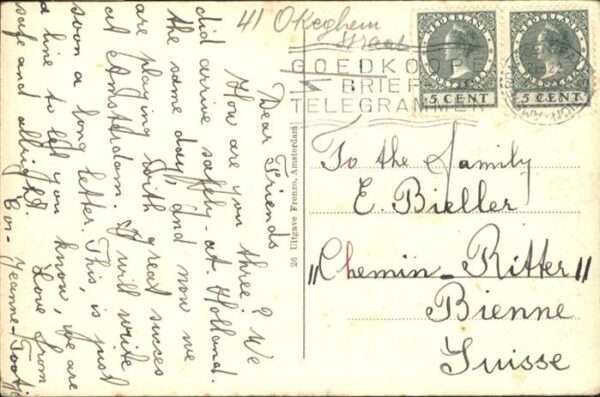 41 Okeghem
straat
Dear Friends
How are you three? We
did arrive saffly-at. Holland.
the same day, and now we
are playing with great succes
at Amsterdam. I will write
soon a long letter. This, is just
a line to let you know, we are
safe and allright
Love from
Cor-Jeanne-Tootje
26 Uitgave Amsterdam
NEDERLAND
5 CENT
NEDERLAND
5 CENT
GOEDKOOPE
BRIEF
TELEGRAMMEN
To the family
E. Bieller
"Chemin-Ritter"
Bienne
Suisse